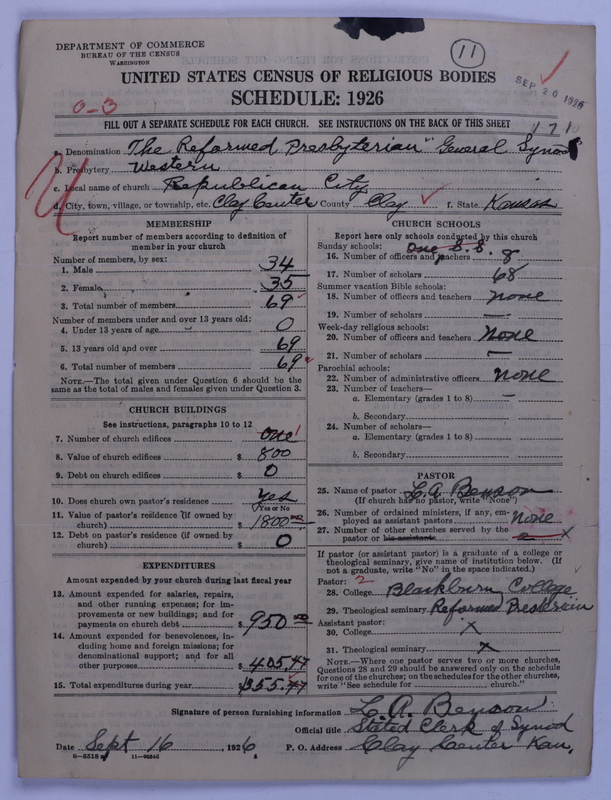 DEPARTMENT OF COMMERCE
BUREAU OF THE CENSUS
WASHINGTON
11
SEP 20 1926
UNITED STATES CENSUS OF RELIGIOUS BODIES
SCHEDULE: 1926
0-3
FILL OUT A SEPARATE SCHEDULE FOR EACH CHURCH. SEE INSTRUCTIONS ON THE BACK OF THIS SHEET
a. Denomination The Reformed Presbyterian "General Synod
b. Presbytery Western
c. Local name of church Republican City
d. City, town, village, or township, etc. Clay Center County Clay f. State Kansas
MEMBERSHIP
Report number of members according to definition of member in your church
Number of members, by sex:
1. Male 34
2. Female 35
3. Total number of members 69
Number of members under and over 13 years old:
4. Under 13 years of age 0
5. 13 years old and over 69
6. Total number of members 69
NOTE.—The total given under Question 6 should be the
same as the total of males and females given under Question 3.
CHURCH BUILDINGS
See instructions, paragraphs 10 to 12
7. Number of church edifices one 1
8. Value of church edifices $ 800
9. Debt on church edifices $ 0
10. Does church own pastor's residence Yes
Yes or No
11. Value of pastor's residence (if owned by
church) $ 1800.00
12. Debt on pastor's residence (if owned by
church) $ 0
EXPENDITURES
Amount expended by your church during last fiscal year
13. Amount expended for salaries, repairs,
and other running expenses; for im-
provements or new buildings; and for
payments on church debt $ 950.00
14. Amount expended for benevolences, in-
cluding home and foreign missions; for
denominational support; and for all
other purposes $ 405.47
15. Total expenditures during year
CHURCH SCHOOLS
Report here only schools conducted by this church
Sunday schools: One S.S.
16. Number of officers and teachers 8
17. Number of scholars 68
Summer vacation Bible schools:
18. Number of officers and teachers none
19. Number of scholars —
Week-day religious schools:
20. Number of officers and teachers None
21. Number of scholars —
Parochial schools:
22. Number of administrative officers none
23. Number of teachers—
a. Elementary (grades 1 to 8) —
b. Secondary
24. Number of scholars—
a. Elementary (grades 1 to 8)
b. Secondary
PASTOR
25. Name of pastor L. A. Benson
(If church has no pastor, write "None")
26. Number of ordained ministers, if any, em-
ployed as assistant pastors None
27. Number of other churches served by the
pastor or his assistant x
If pastor (or assistant pastor) is a graduate of a college or
theological seminary, give name of institution below. (If
not a graduate, write "No" in the space indicated.)
Pastor: 2
28. College Blackburn College
29. Theological seminary Reformed Presbterian
Assistant pastor:
30. College x
31. Theological seminary x
NOTE.—Where one pastor serves two or more churches,
Questions 28 and 29 should be answered only on the schedule
for one of the churches; on the schedules for the other churches,
write "See schedule for church."
Signature of person furnishing information L. A. Benson
Official title Stated Clerk of Synod
Date Sept 16, 1926 P. O. Address Clay Center Kan,
8-551B 11-9054d